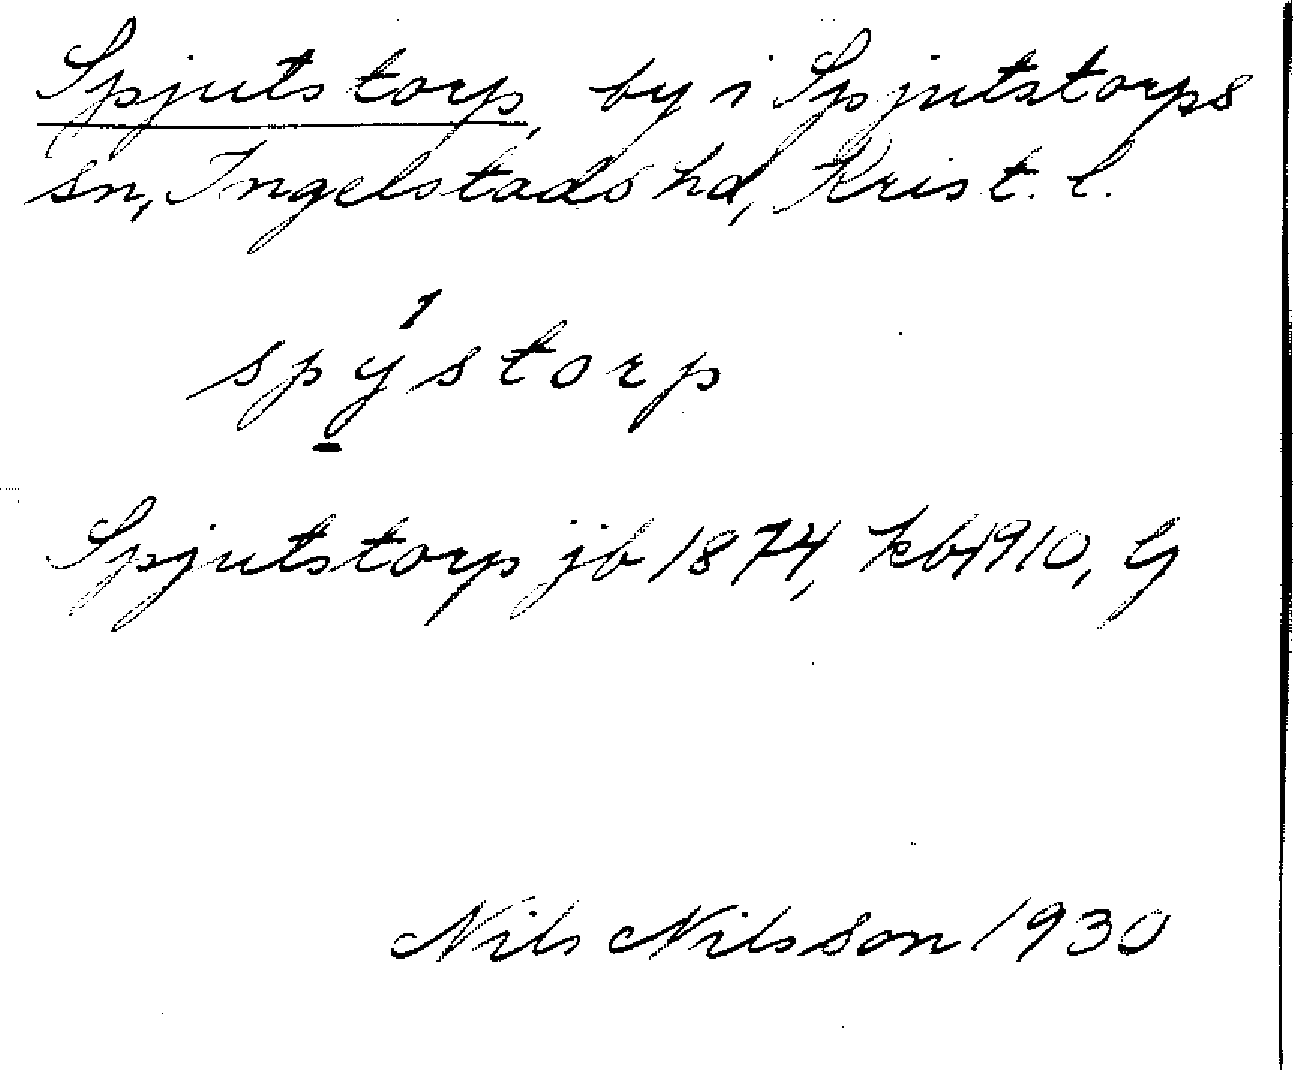 Spjutstorp, by i Spjutstorps
sn, Ingelstads hd, Krist. l.
spýstorp
Spjutstorp jb 1874, kb 1910, G
Nils Nilsson 1930